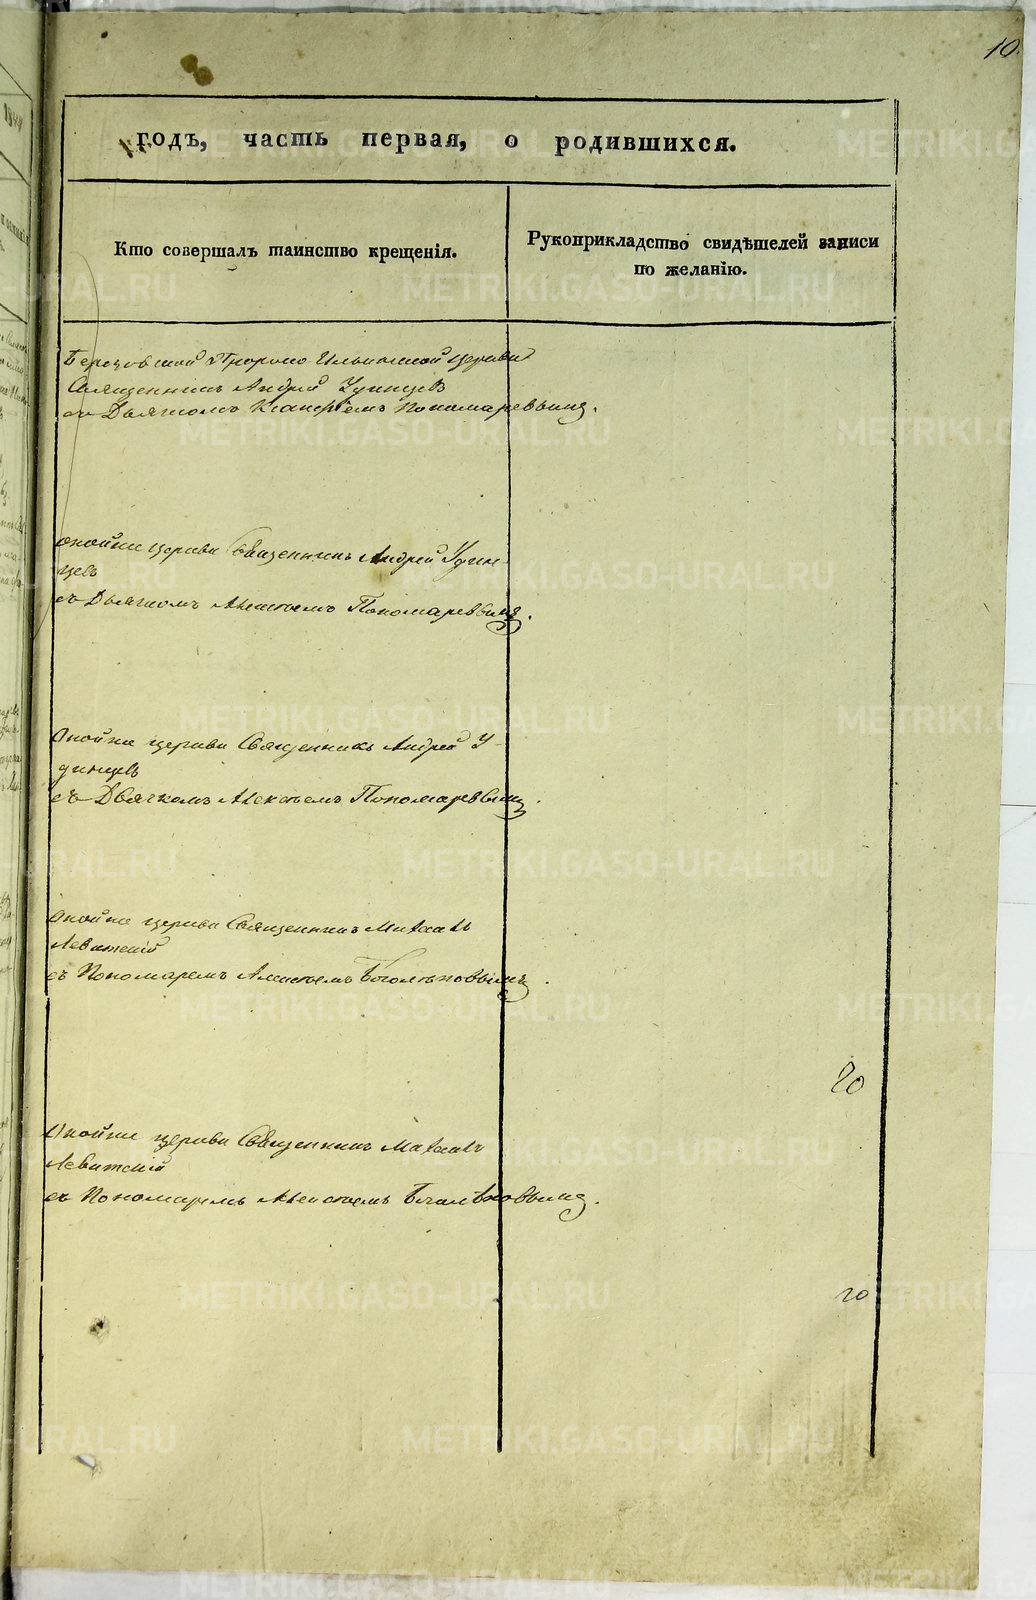 10.
годъ, часть первая, о родившихся.
Кто совершалъ таинство крещенія.
Рукоприкладство свидѣтелей записи
по желанію.
Березовской Пророко Ильинской церкви
Священникъ Андрей Удинцевъ
съ Дьячкомъ Пономаревымъ.
Оной же церкви Священникъ Андрей Удин-
цевъ
съ Дьячкомъ Алексѣемъ Пономаревымъ.
Оной же церкви Священникъ Андрей У-
динцевъ
съ Дьячкомъ Алексѣемъ Пономаревымъ.
Оной же церкви Священникъ Михаилъ
Левитскій
съ Пономаремъ Алексѣемъ
20
Оной же церкви Священникъ Михаилъ
Левитскій
съ Пономаремъ Алексѣемъ
20
METRIKI.GASO-URAL.RU